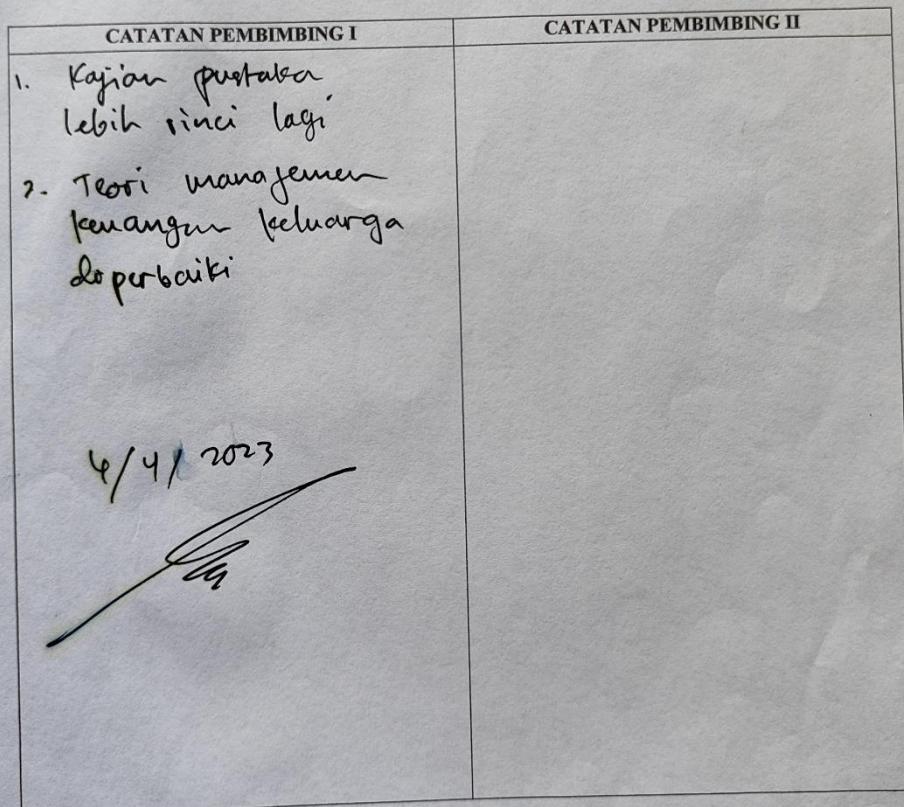 CATATAN PEMBIMBING I
CATATAN PEMBIMBING II
1. Kajian pustaka
lebih rinci lagi
2. Teori manajemen
keuangan keluarga
diperbaiki
4/4/2023